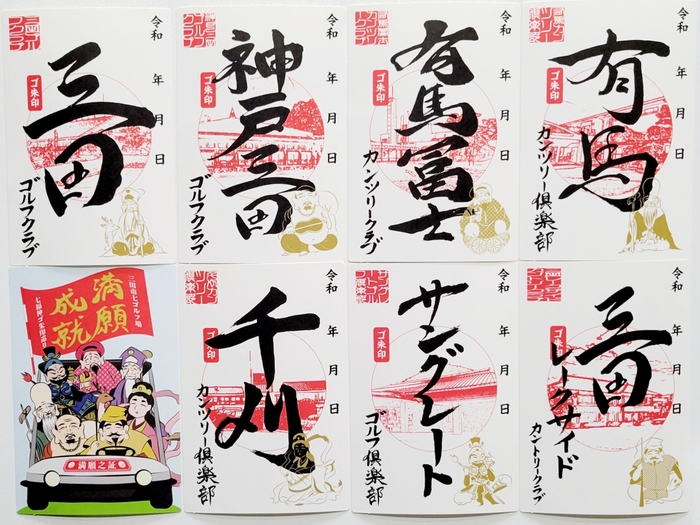 令和 年 月 日
ゴ朱印
三田
ゴルフクラブ
令和 年 月 日
ゴ朱印
神戸三田
ゴルフクラブ
令和 年 月 日
ゴ朱印
有馬冨士
カンツリークラブ
令和 年 月 日
ゴ朱印
有馬
カンツリー倶楽部
三田市七ゴルフ場
七福神ゴ朱印めぐり
満願
成就
満願之証
令和 年 月 日
ゴ朱印
千刈
カンツリー倶楽部
令和 年 月 日
ゴ朱印
サングレート
ゴルフ倶楽部
令和 年 月 日
ゴ朱印
三田
レークサイド
カントリークラブ